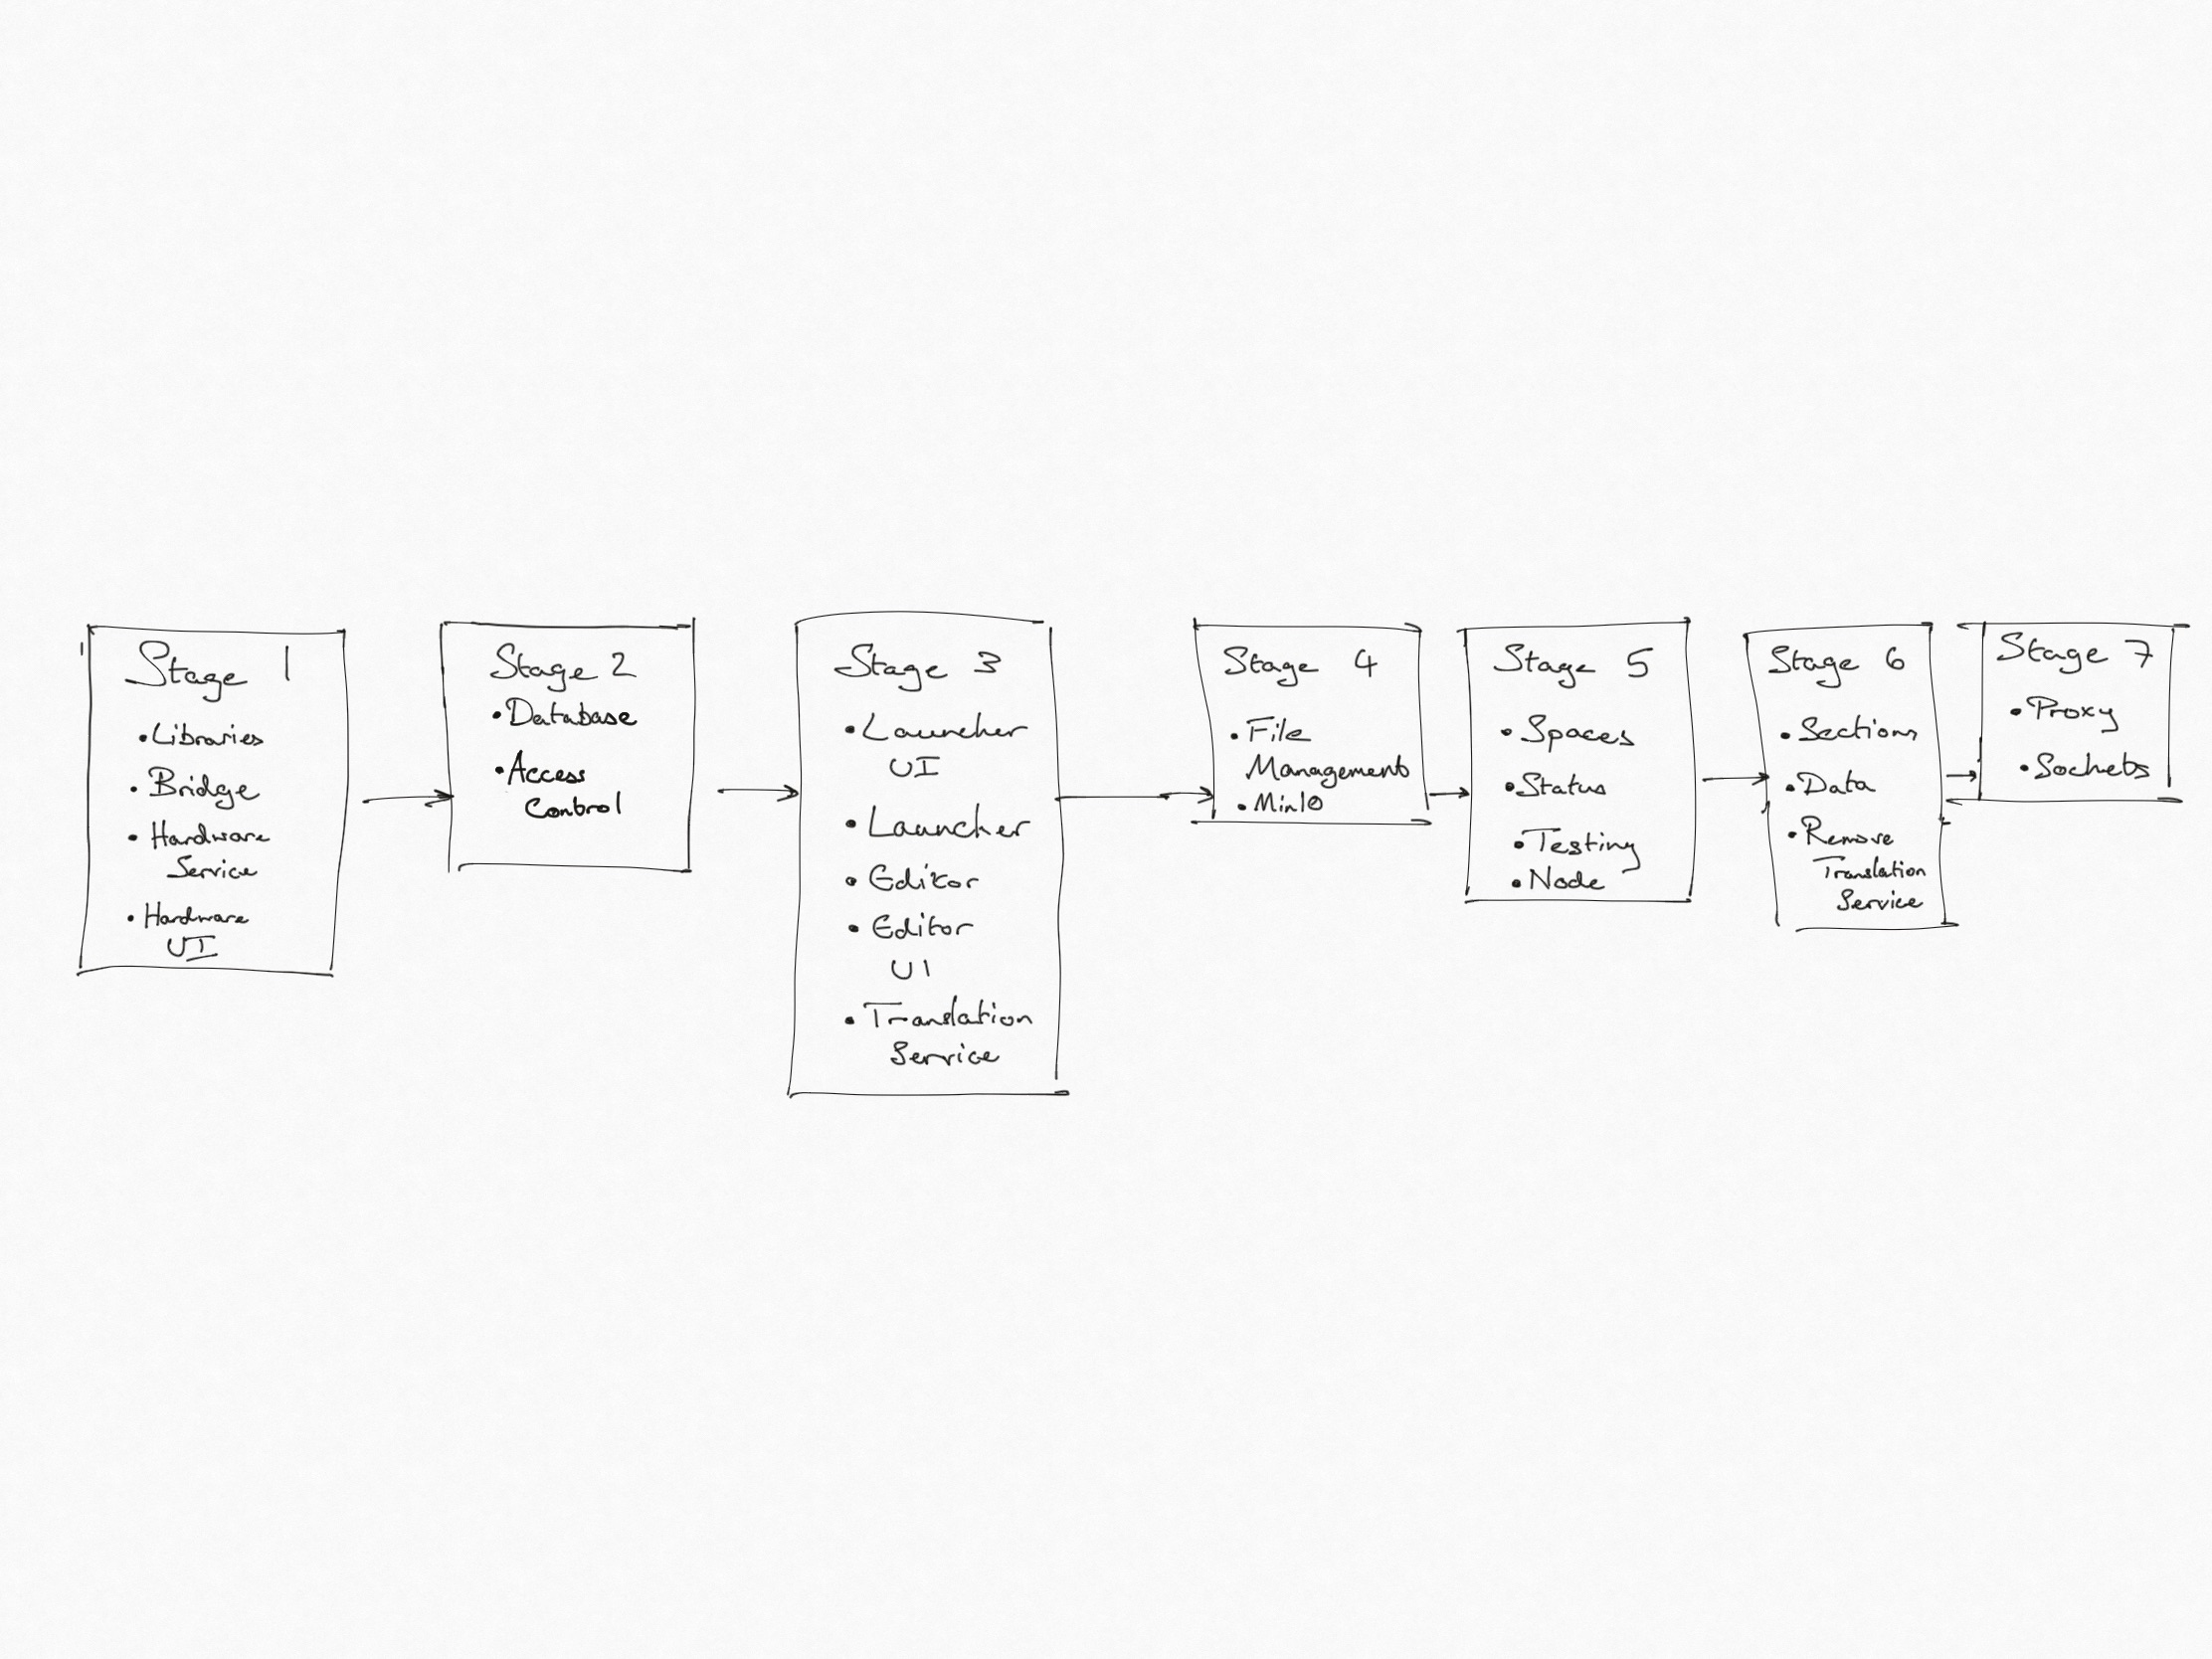 Stage 1
• Libraries
• Bridge
• Hardware
Service
• Hardware
UI
Stage 2
• Database
• Access
Control
Stage 3
• Launcher
UI
• Launcher
• Editor
• Editor
UI
• Translation
Service
Stage 4
• File
Management
• MinIO
Stage 5
• Spaces
• Status
• Testing
• Node
Stage 6
• Sections
• Data
• Remove
Translation
Service
Stage 7
• Proxy
• Sockets